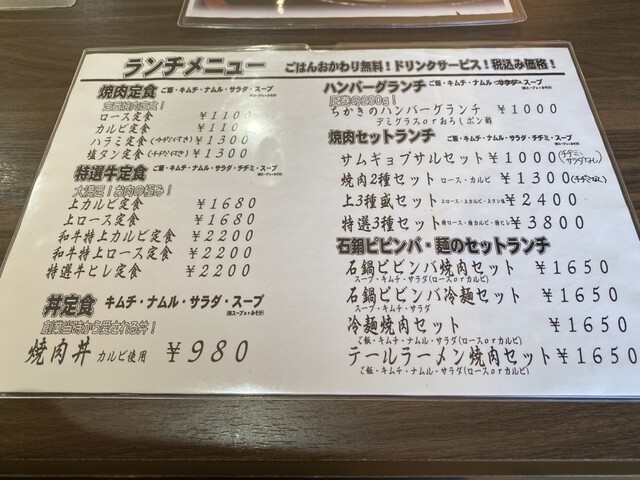 ランチメニュー
ごはんおかわり無料！ドリンクサービス！税込み価格！
焼肉定食 ご飯・キムチ・ナムル・サラダ・スープ
ロース定食 ￥1100
カルビ定食 ￥1100
ハラミ定食 ￥1300
塩タン定食 ￥1300
特選牛定食 ご飯・キムチ・ナムル・サラダ・チヂミ・スープ
大満足！お肉の極み！
上カルビ定食 ￥1680
上ロース定食 ￥1680
和牛特上カルビ定食 ￥2200
和牛特上ロース定食 ￥2200
特選牛ヒレ定食 ￥2200
丼定食 キムチ・ナムル・サラダ・スープ
創業当時から愛される丼！
焼肉丼 カルビ使用 ￥980
ハンバーグランチ ご飯・キムチ・ナムル・サラダ・スープ
ちかきのハンバーグランチ ￥1000
デミグラスorおろしポン酢
焼肉セットランチ ご飯・キムチ・ナムル・サラダ・チヂミ・スープ
サムギョプサルセット ￥1000 (チヂミ、サラダなし)
焼肉2種セット ロース・カルビ ￥1300 (チヂミなし)
上3種盛セット ￥2400
特選3種セット ￥3800
石鍋ビビンバ・麺のセットランチ
石鍋ビビンバ焼肉セット ￥1650
スープ・キムチ・サラダ(ロースorカルビ)
石鍋ビビンバ冷麺セット ￥1650
キムチ・ナムル・サラダ
冷麺焼肉セット ￥1650
ご飯・キムチ・ナムル・サラダ(ロースorカルビ)
テールラーメン焼肉セット ￥1650
ご飯・キムチ・ナムル・サラダ(ロースorカルビ)